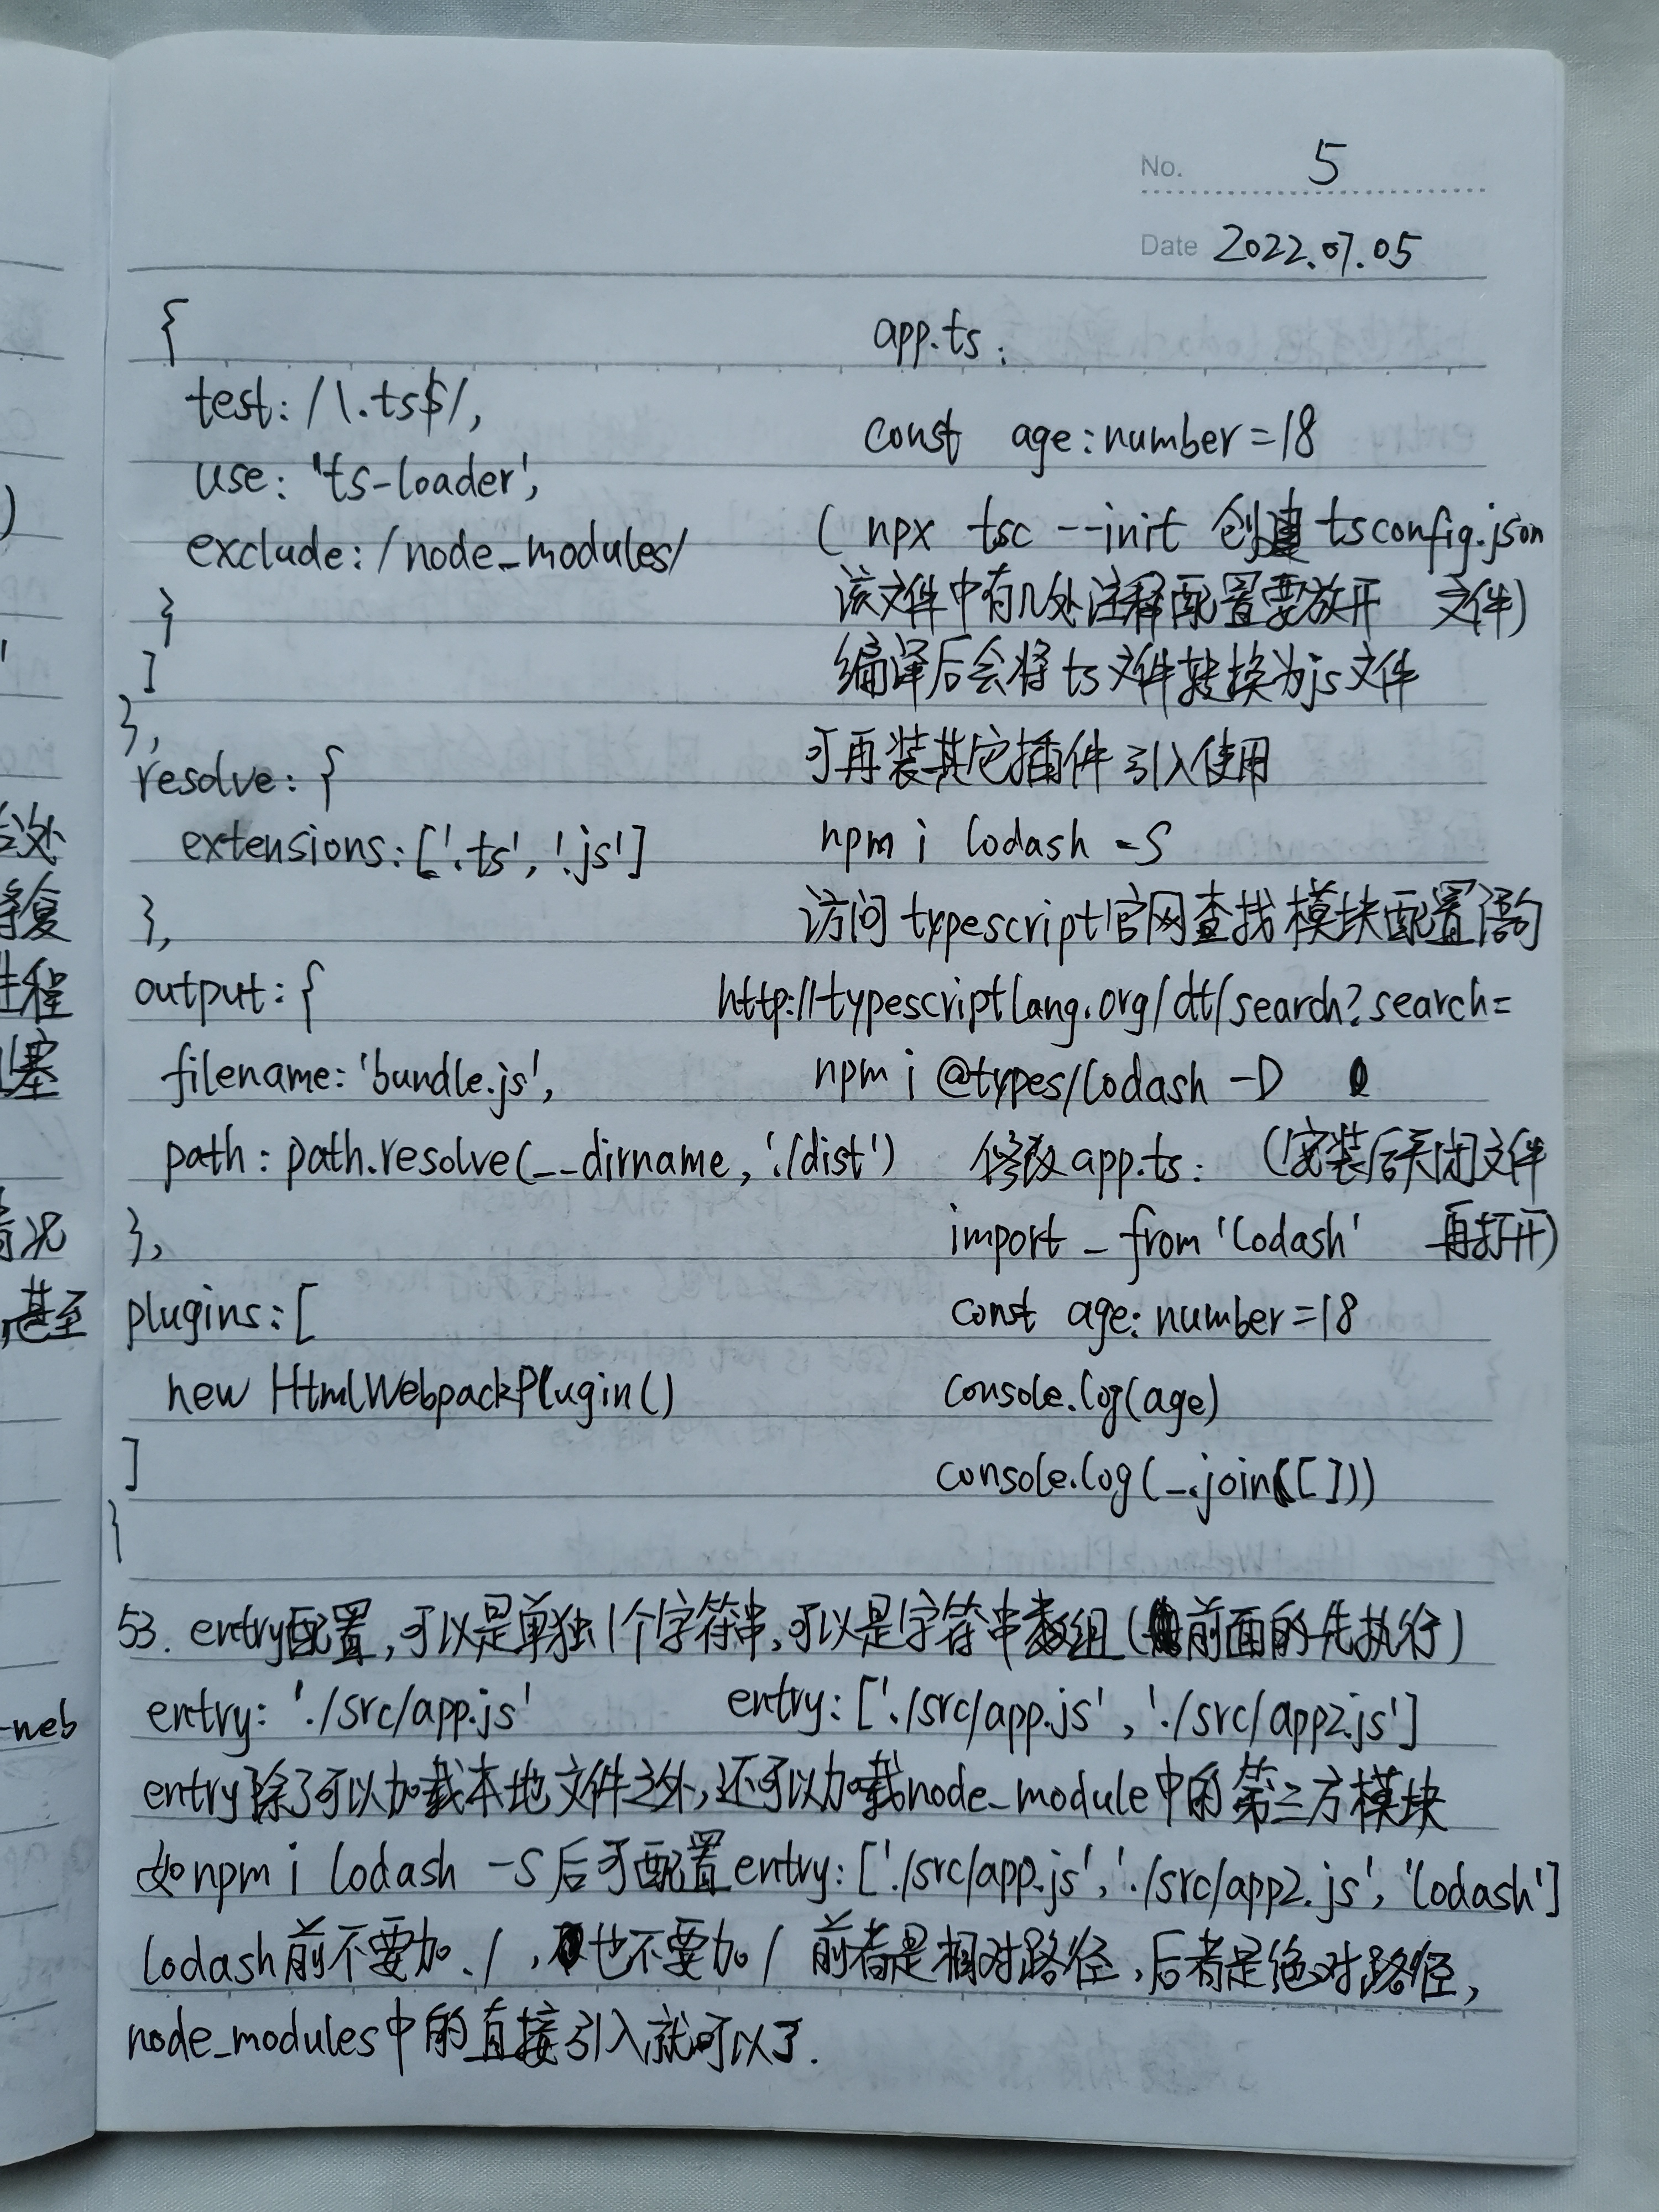 No. 5
Date 2022.07.05
{
test: /\.ts$/,
use: 'ts-loader',
exclude: /node_modules/
}
]
},
resolve: {
extensions: ['.ts', '.js']
},
output: {
filename: 'bundle.js',
path: path.resolve(__dirname, './dist')
},
plugins: [
new HtmlWebpackPlugin()
]
}
app.ts:
const age: number = 18
( npx tsc --init 创建 tsconfig.json
该文件中有几处注释配置要放开 文件)
编译后会将ts文件转换为js文件
可再装其它插件引入使用
npm i lodash -S
访问typescript官网查找模块配置语句
http://typescriptlang.org/dt/search?search=
npm i @types/lodash -D
修改app.ts: (安装后关闭文件
import _ from 'lodash' 再打开)
const age: number = 18
console.log(age)
console.log(_.join([]))
53. entry配置,可以是单独1个字符串,可以是字符串数组(前面的先执行)
entry: './src/app.js' entry: ['./src/app.js', './src/app2.js']
entry除了可以加载本地文件之外,还可以加载node_module中的第三方模块
如npm i lodash -S后可配置entry: ['./src/app.js', './src/app2.js', 'lodash']
lodash前不要加./,也不要加/ 前者是相对路径,后者是绝对路径,
node_modules中的直接引入就可以了.
后处
将复
进程
塞
情况
,甚至
-web